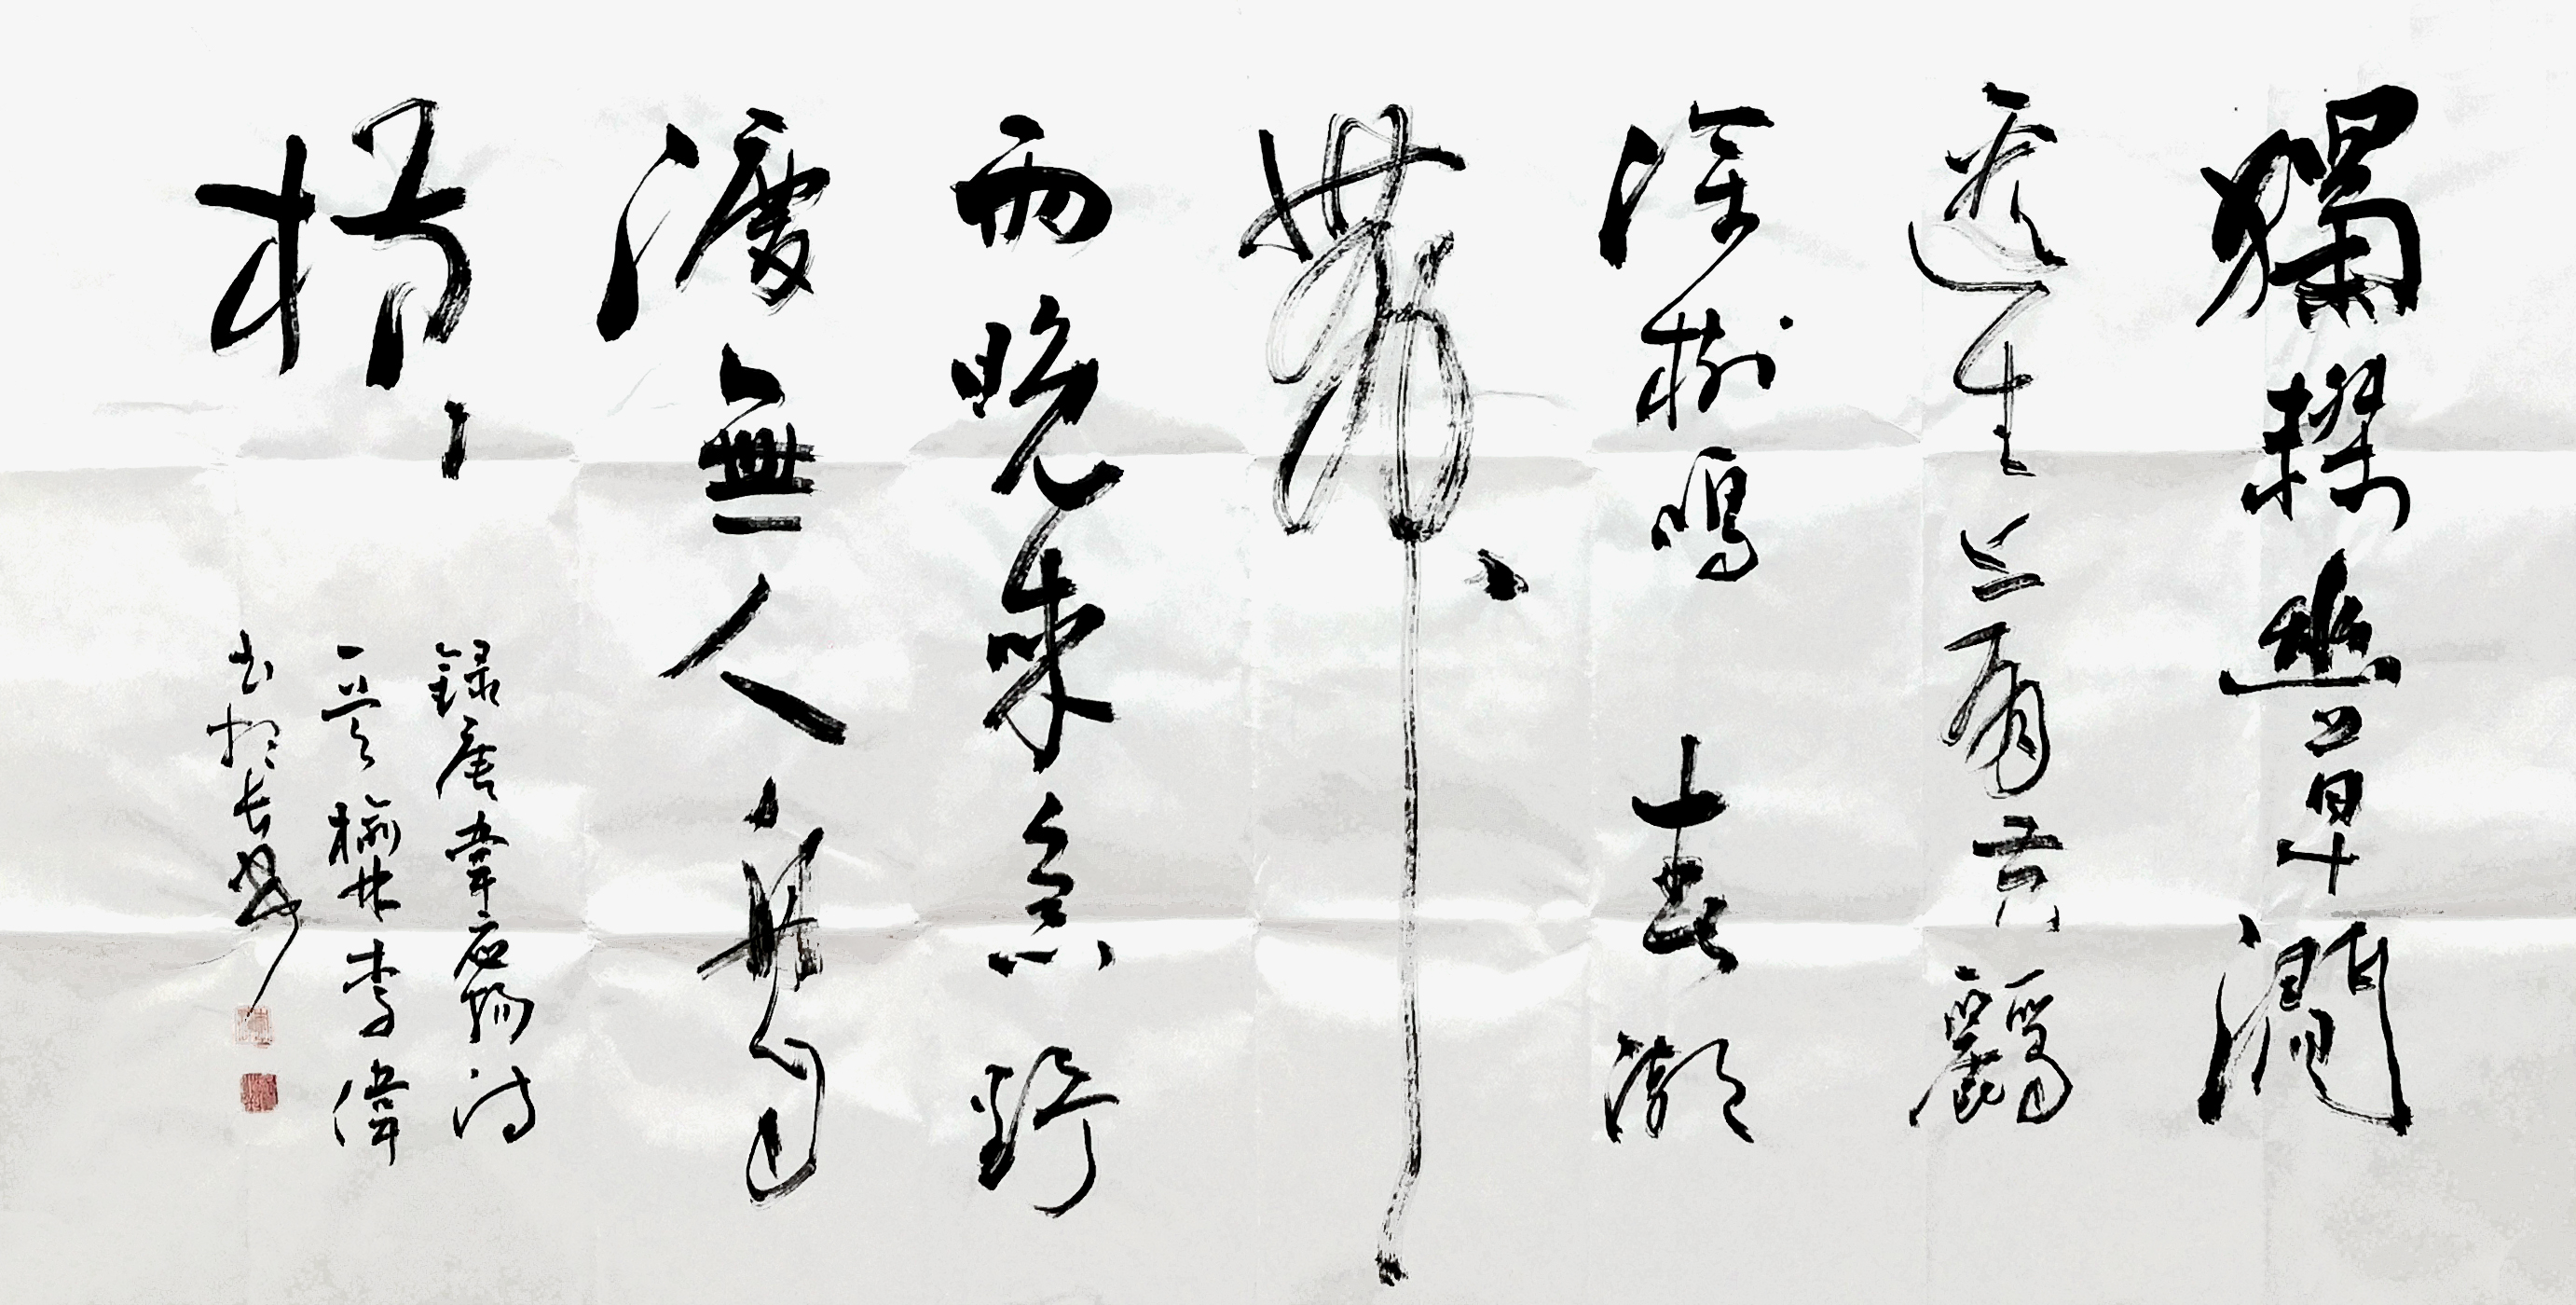 獨憐幽草澗
邊生上有黃鸝
深樹鳴春潮
帶
雨晚來急野
渡無人舟自
橫
錄唐韋應物詩
一首榆林李偉
書於長安